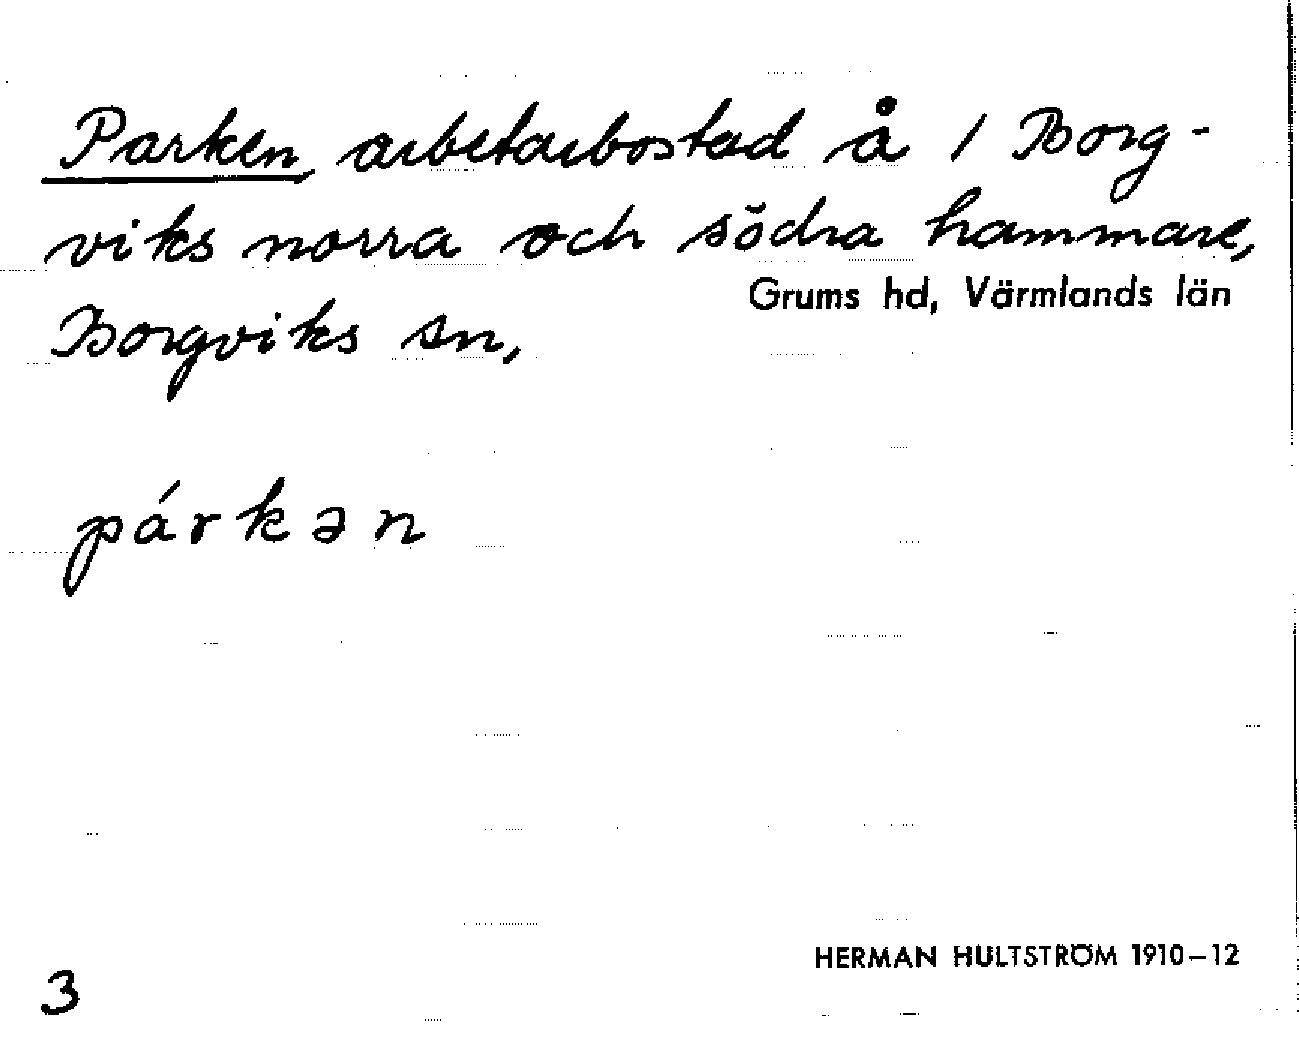 Parken, arbetarbostad å 1 Borg-
viks norra och södra hammare,
Grums hd, Värmlands län
Borgviks sn,
párkən
HERMAN HULTSTRÖM 1910–12
3